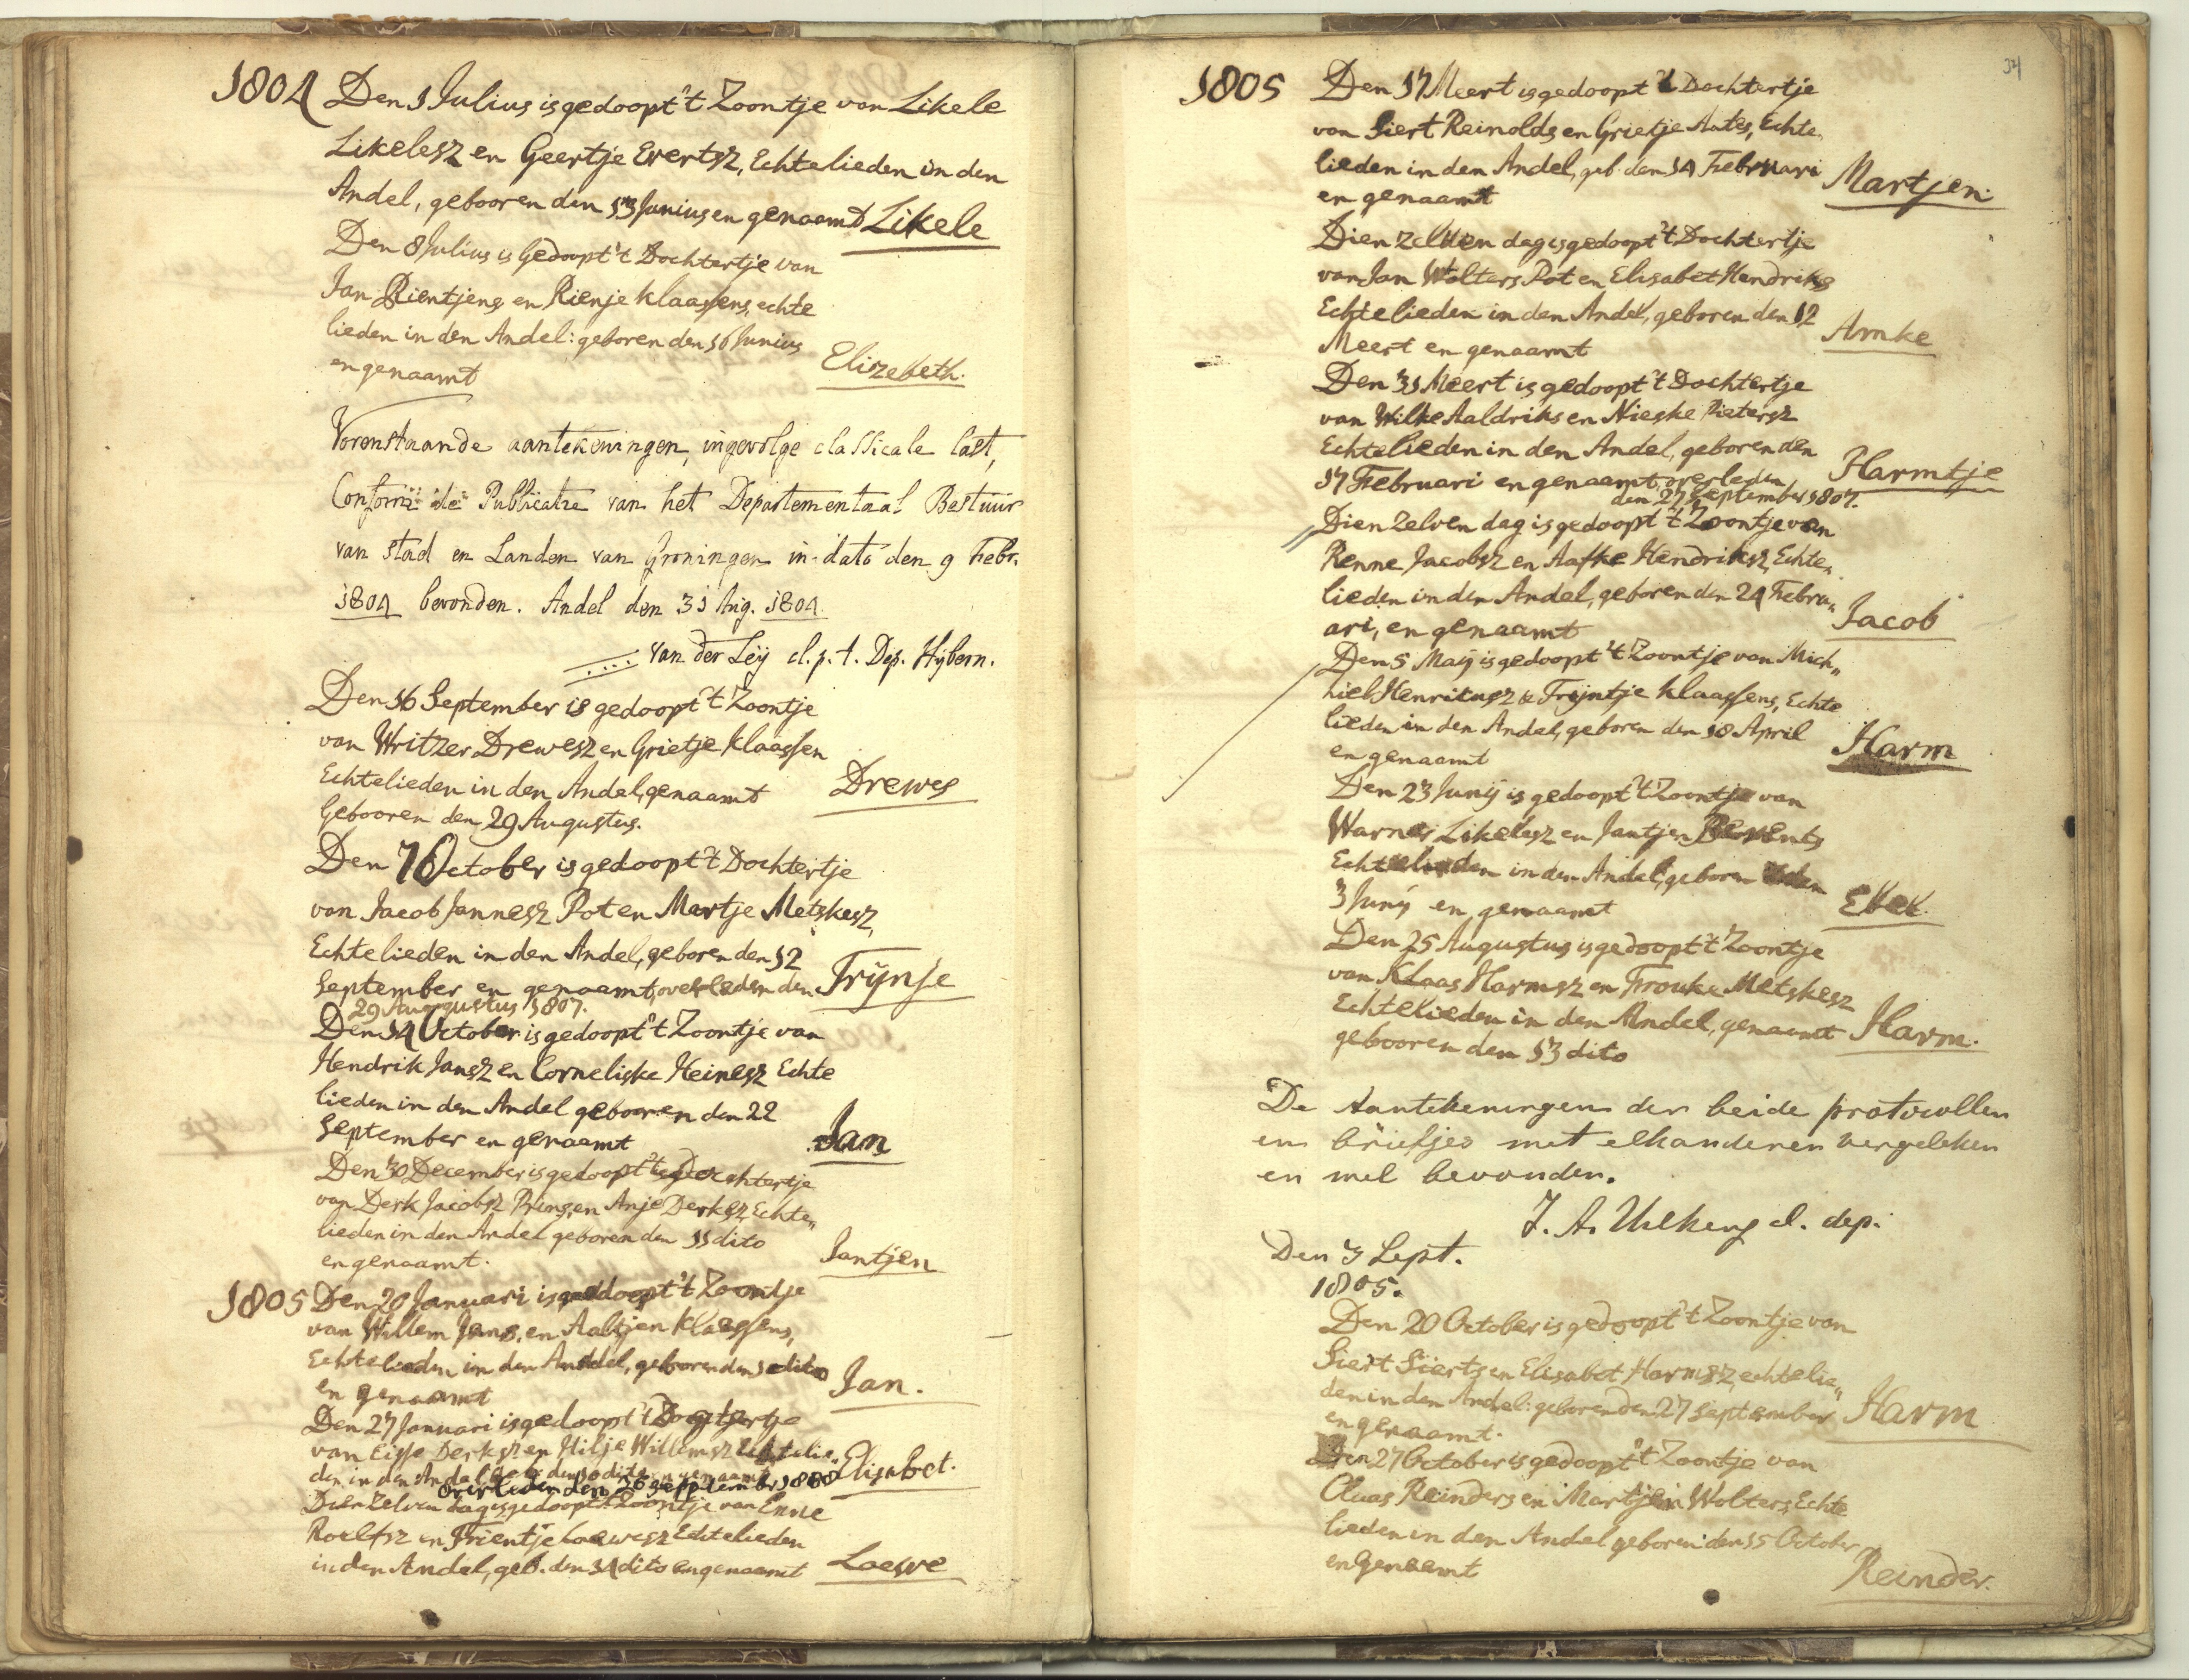 1804 Den 1 Julius is gedoopt 't Zoontje van Likele
Likelesz en Geertje Evertsz, Echtelieden in den
Andel, gebooren den 13 Junius en genaamd Likele
Den 8 Julius is Gedoopt 't Dochtertje van
Jan Rientjens en Rienje Klaassens, echte
lieden in den Andel: geboren den 16 Junius
en genaamt Elizebeth.
Vorenstaande aantekeningen, ingevolge classicale last,
Conform de Publicatie van het Departementaal Bestuur
van stad en Landen van Groningen in dato den 9 Febr.
1804 bevonden. Andel den 31 Aug. 1804
van der Leij cl. p. t. Dep. Hybern.
Den 16 September is gedoopt 't Zoontje
van Writzer Drewesz en Grietje Klaassen
Echtelieden in den Andel, genaamd Drewes
Gebooren den 29 Augustus.
Den 7 October is gedoopt 't Dochtertje
van Jacob Jannesz Pot en Martje Metskesz,
Echtelieden in den Andel, geboren den 12
September en genaamt, overleden den Trijntje
29 Augustus 1807.
Den 14 October is gedoopt 't Zoontje van
Hendrik Jansz en Corneliske Heinesz Echte
lieden in den Andel gebooren den 22
September en genaamt Jan
Den 30 December is gedoopt 't Dochtertje
van Derk Jacobsz Prins, en Anje Derksz, Echte„
lieden in den Andel geboren den 11 dito
en genaamt. Jantjen
1805 Den 20 Januari is gedoopt 't Zoontje
van Willem Jans, en Aaltjen Klaassens,
Echtelieden in den Andel, geboren den 1 dito
en genaamt Jan.
Den 27 Januari is gedoopt 't Dogtjertje
van Eisse Derksz en Hilje Willemsz Echtelie„
den in den Andel geb. den 10 dito en genaamt Elisabet.
overleden den 26 september 1808
Dien zelven dag is gedoopt 't Zoontje van Enne
Roelfsz en Trientje Loewesz Echtelieden
in den Andel, geb. den 14 dito en genaamt Loewe
34
1805 Den 17 Meert is gedoopt 't Dochtertje
van Siert Reinolds en Grietje Aates, Echte
lieden in den Andel, geb. den 14 Februari
en genaamt Martjen.
Dien zelven dag is gedoopt 't Dochtertje
van Jan Wolters Pot en Elisabet Hendriks
Echtelieden in den Andel, geboren den 12
Meert en genaamt Arnke
Den 31 Meert is gedoopt 't Dochtertje
van Wilke Aaldriks en Nieske Pietersz
Echtelieden in den Andel, geboren den
17 Februari en genaamt, overleden Harmtje
den 27 September 1807.
Dien Zelven dag is gedoopt 't Zoontje van
Renne Jacobsz en Aafke Hendriksz, Echte„
lieden in den Andel, geboren den 24 Febru„
ari, en genaamt Jacob
Den 5 Maij is gedoopt 't Zoontje van Mich„
hiel Henrikusz & Trijntje Klaassens, Echte
lieden in den Andel, geboren den 18 April
en genaamt Harm
Den 23 Junij is gedoopt 't Zoontje van
Warner Likelesz en Jantjen Berents
Echtelieden in den Andel, geboren den
3 Junij en genaamt
Den 25 Augustus is gedoopt 't Zoontje
van Klaas Harmsz en Frouke Metskesz
Echtelieden in den Andel, genaamt Harm.
gebooren den 13 dito
De Aantekeningen der beide protocollen
en briefjes met elkanderen vergeleken
en wel bevonden.
J. A. Uilkens cl. dep.
Den 3 Sept.
1805.
Den 20 October is gedoopt 't Zoontje van
Siert Sierts en Elisabet Harmsz, echtelie„
den in den Andel: geboren den 27 September Harm
en genaamt.
Den 27 October is gedoopt 't Zoontje van
Claas Reinders en Martjen Wolters, Echte
lieden in den Andel geboren den 15 October
en genaamt Reinder.